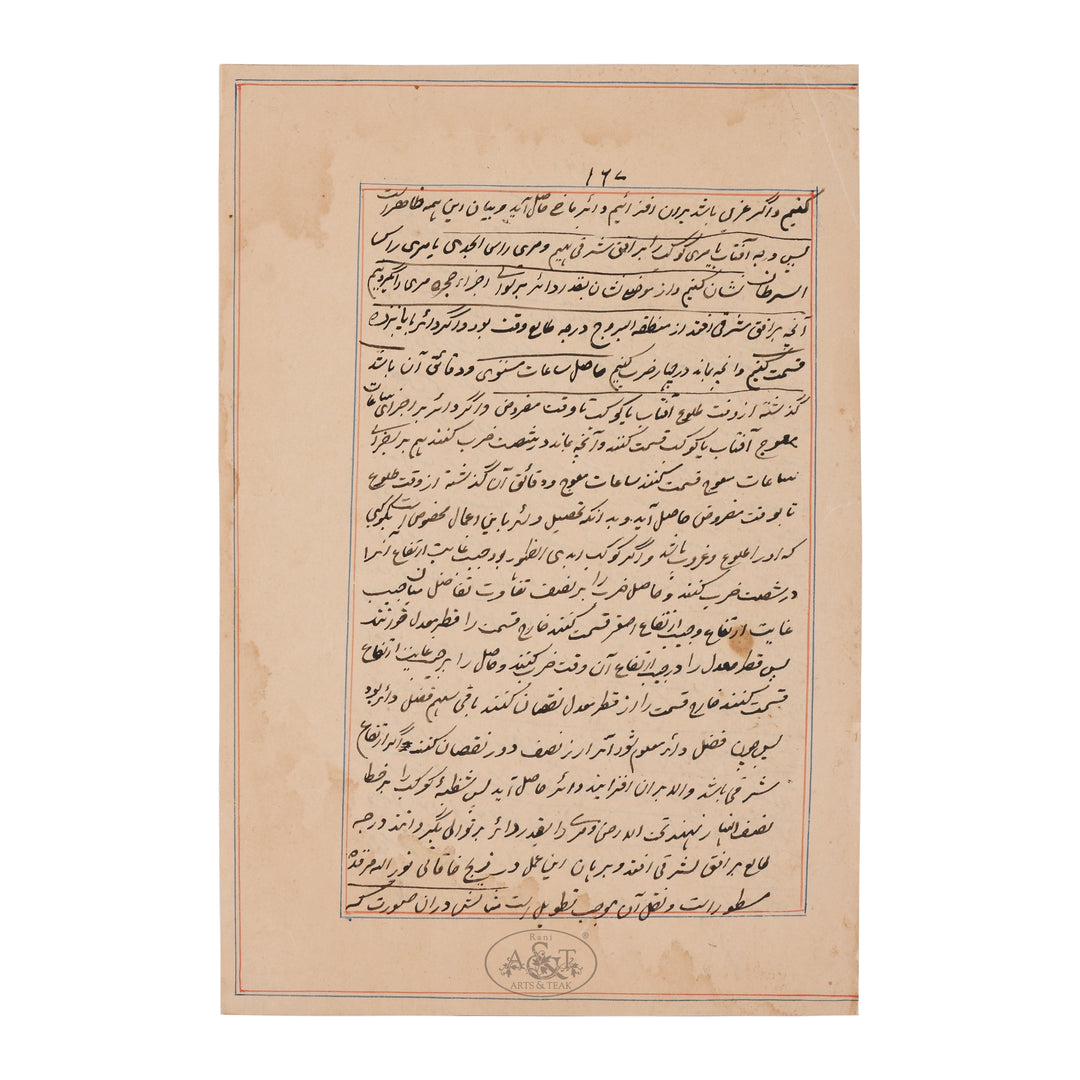 ۱۶۷
کنیم و اگر غربی باشد بران افزائیم دائر ماضی حاصل آید و بیان این همه ظاهر است
پس و به آفتاب یا مری کوکب را بر افق شرقی نهیم و مری راس الجدی یا مری راس
السرطان نشان کنیم و از موضع نشان بقدر دائر بر توالی اجزاء حجره مری را بگردانیم
آنچه بر افق شرقی افتد از منطقه البروج درجه طالع وقت بود و اگر دائر را بپانزده
قسمت کنیم و آنچه بماند در چهار ضرب کنیم حاصل ساعات مستوی و دقائق آن باشد
گذشته از وقت طلوع آفتاب یا کوکب تا وقت مفروض و اگر دائر بر اجزای ساعات
معوج آفتاب یا کوکب قسمت کنند و آنچه بماند در شصت ضرب کنند هم بر اجزای
ساعات معوج قسمت کنند ساعات معوج و دقائق آن گذشته از وقت طلوع
تا بوقت مفروض حاصل آید و بدانکه تحصیل دائر باین اعمال مخصوص است بکوکبی
که او را طلوع و غروب باشد و اگر کوکب ابدی الظهور بود جیب غایت ارتفاع آنرا
در شصت ضرب کنند و حاصل ضرب را بر نصف تفاوت تفاضل میان جیب
غایت ارتفاع و جیب ارتفاع اصغر قسمت کنند خارج قسمت را قطر معدل خوانند
پس قطر معدل را در جیب ارتفاع آن وقت ضرب کنند و حاصل را بر جیب غایت ارتفاع
قسمت کنند خارج قسمت را از قطر معدل نقصان کنند باقی سهم فضل دائر بود
پس چون فضل دائر معلوم شود آنرا از نصف دور نقصان کنند اگر ارتفاع
شرقی باشد و الا بران افزایند دائر حاصل آید پس شظیهٔ کوکب را بر خط
نصف النهار نهند تحت الارض و مری را بقدر دائر بر توالی بگردانند درجه
طالع بر افق شرقی افتد و برهان این عمل در زیج خاقانی نور الله مرقده
مسطور است و نقل آن موجب تطویل است مثالش دران صورت که
Rani
A&T
ARTS & TEAK